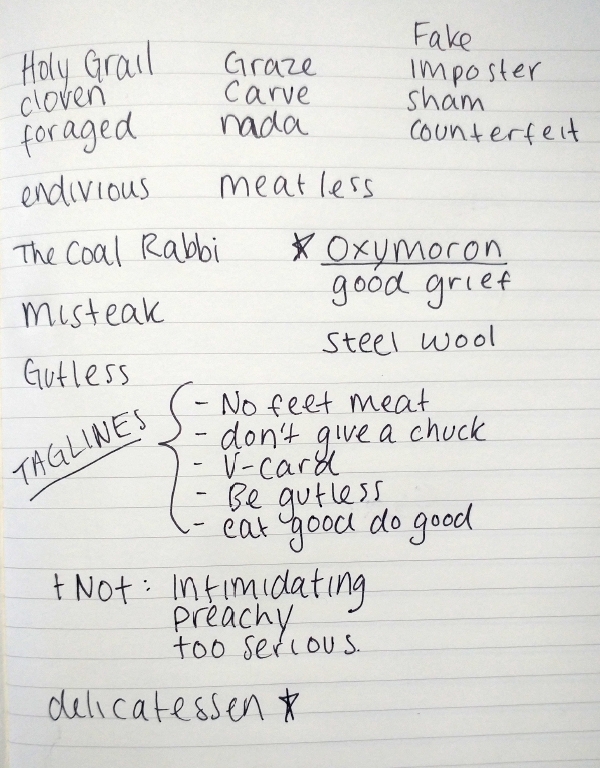 Fake
Holy Grail Graze Imposter
cloven Carve sham
foraged nada counterfeit
endivious meatless
The Coal Rabbi * Oxymoron
good grief
Misteak
steel wool
Gutless
TAGLINES
- No feet meat
- don't give a chuck
- V-card
- Be gutless
- eat good do good
+ Not: Intimidating
preachy
too serious.
delicatessen *